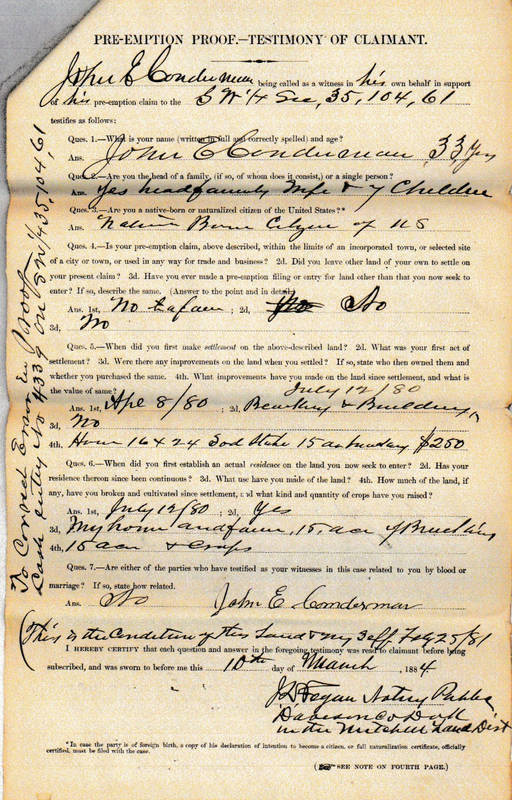 PRE-EMPTION PROOF.—TESTIMONY OF CLAIMANT.
John E Conderman being called as a witness in his own behalf in support
of his pre-emption claim to the S W ¼ Sec, 35, 104, 61
testifies as follows:
Ques. 1.—What is your name (written in full and correctly spelled) and age?
Ans. John E Conderman, 33 yrs
Ques. 2.—Are you the head of a family, (if so, of whom does it consist,) or a single person?
Ans. Yes head family Wife & 7 Children
Ques. 3.—Are you a native-born or naturalized citizen of the United States?*
Ans. Native Born Citizen of US
Ques. 4.—Is your pre-emption claim, above described, within the limits of an incorporated town, or selected site
of a city or town, or used in any way for trade and business? 2d. Did you leave other land of your own to settle on
your present claim? 3d. Have you ever made a pre-emption filing or entry for land other than that you now seek to
enter? If so, describe the same. (Answer to the point and in detail.)
Ans. 1st, No farm; 2d, No
3d, No
Ques. 5.—When did you first make settlement on the above-described land? 2d. What was your first act of
settlement? 3d. Were there any improvements on the land when you settled? If so, state who then owned them and
whether you purchased the same. 4th. What improvements have you made on the land since settlement, and what is
the value of same? July 12/80
Ans. 1st, Apl 8/80; 2d, Breaking & Building
3d, No
4th, House 16 x 24 Sod Stable 15 acres breaking $250
Ques. 6.—When did you first establish an actual residence on the land you now seek to enter? 2d. Has your
residence thereon since been continuous? 3d. What use have you made of the land? 4th. How much of the land, if
any, have you broken and cultivated since settlement, and what kind and quantity of crops have you raised?
Ans. 1st, July 12/80; 2d, Yes
3d, My home and farm, 15, acr of Breaking
4th, 15 acr & Crops
Ques. 7.—Are either of the parties who have testified as your witnesses in this case related to you by blood or
marriage? If so, state how related.
Ans. No John E. Conderman
(This is the Condition of this Land & my Feby 25/81
I HEREBY CERTIFY that each question and answer in the foregoing testimony was read to claimant before being
subscribed, and was sworn to before me this 10th day of March, 1884
Fegan Notary Public
Davison Co Dak
in the Mitchell Land Dist
*In case the party is of foreign birth, a copy of his declaration of intention to become a citizen, or full naturalization certificate, officially
certified, must be filed with the case.
(SEE NOTE ON FOURTH PAGE.)
To Correct Error in Proof
Cash Entry No 4339 on SW/4 35, 104, 61